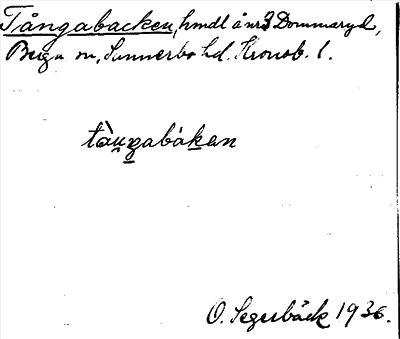 Tångabacken, hmdl å nr 3 Dommaryd,
Berga sn, Sunnerbo hd. Kronob. l.
tàṉg̱abáḵan
O. Segerbäck 1936.